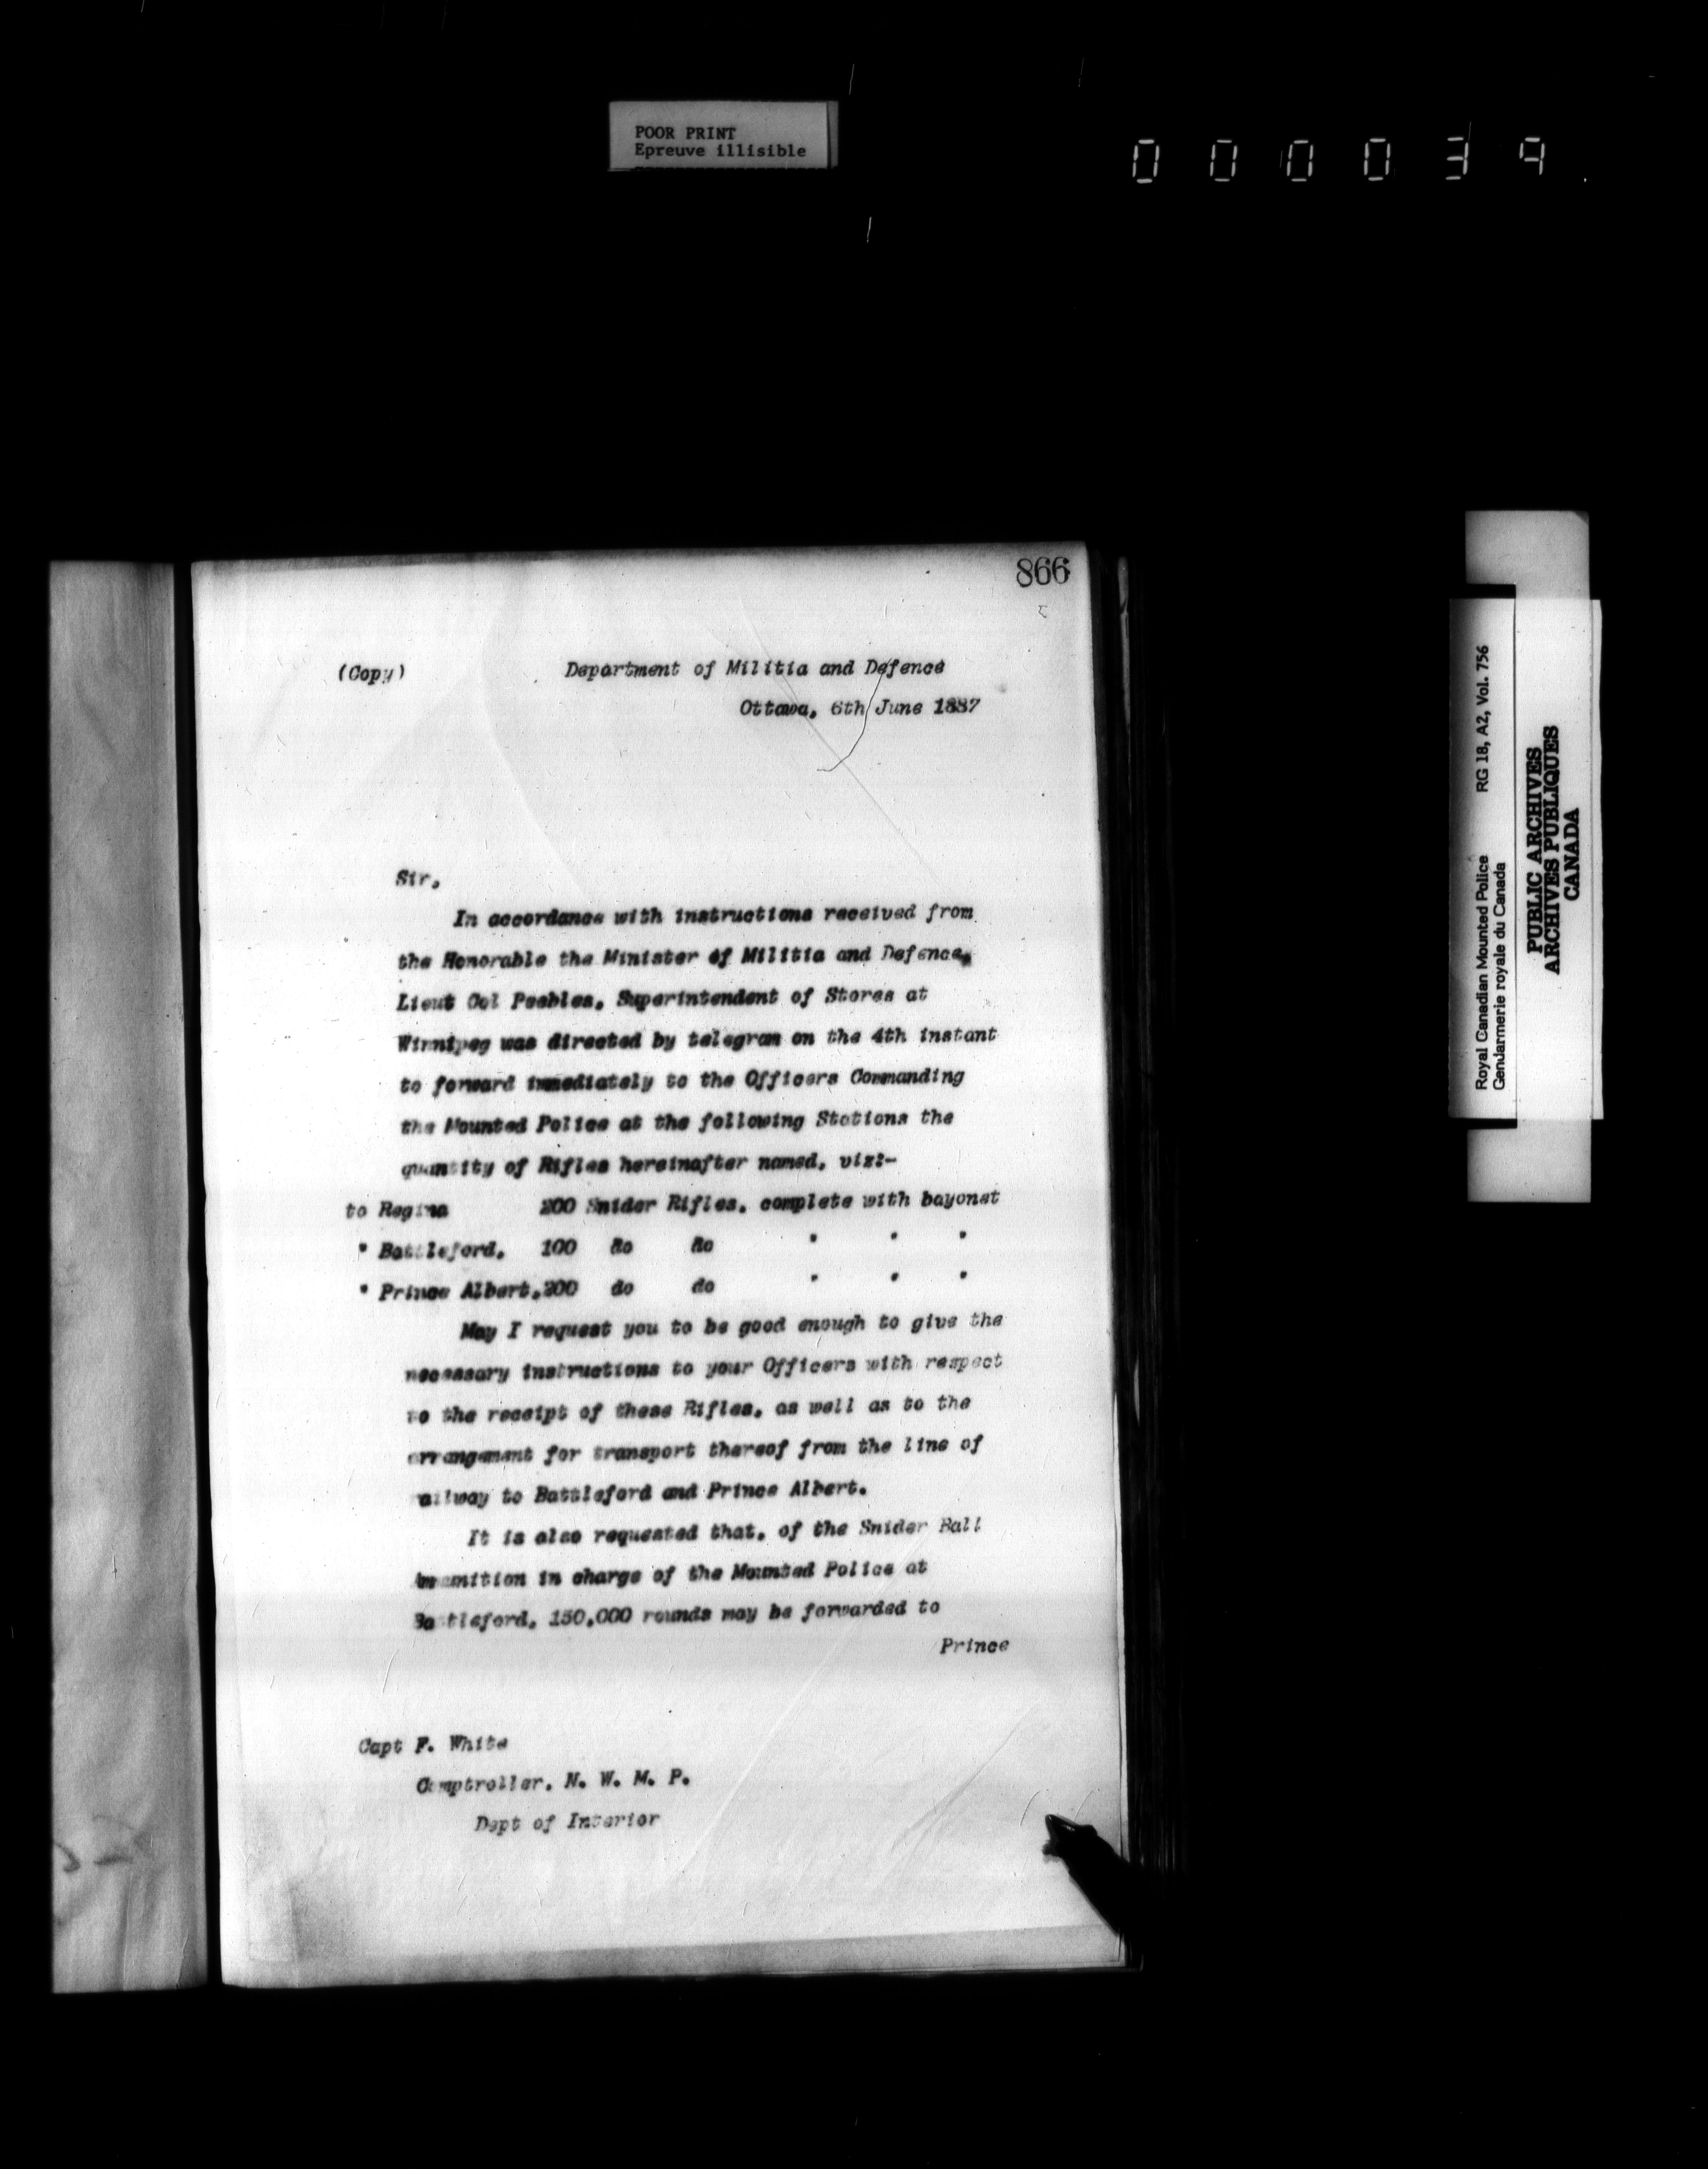 POOR PRINT
Epreuve illisible
000039
866
(Copy) Department of Militia and Defence
Ottawa, 6th June 1887
Sir,
In accordance with instructions received from
the Honorable the Minister of Militia and Defence,
Lieut Col Peebles, Superintendent of Stores at
Winnipeg was directed by telegram on the 4th instant
to forward immediately to the Officers Commanding
the Mounted Police at the following Stations the
quantity of Rifles hereinafter named, viz:-
to Regina 200 Snider Rifles, complete with bayonet
" Battleford, 100 do do " " "
" Prince Albert, 200 do do " " "
May I request you to be good enough to give the
necessary instructions to your Officers with respect
to the receipt of these Rifles, as well as to the
arrangement for transport thereof from the line of
railway to Battleford and Prince Albert.
It is also requested that, of the Snider Ball
Ammunition in charge of the Mounted Police at
Battleford, 150,000 rounds may be forwarded to
Prince
Capt F. White
Comptroller, N. W. M. P.
Dept of Interior
Royal Canadian Mounted Police RG 18, A2, Vol. 756
Gendarmerie royale du Canada
PUBLIC ARCHIVES
ARCHIVES PUBLIQUES
CANADA